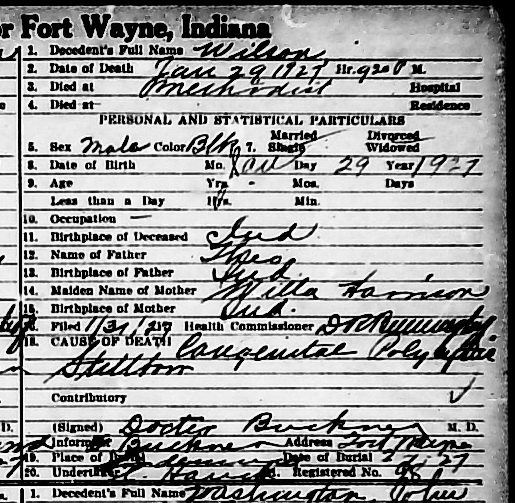 r Fort Wayne, Indiana
1. Decedent's Full Name Wilson
2. Date of Death Jan 29 1927 Hr. 920 P M.
3. Died at Methodist Hospital
4. Died at Residence
PERSONAL AND STATISTICAL PARTICULARS
5. Sex Male Color Blk 7. Married Single Divorced Widowed
8. Date of Birth Mo. Jan Day 29 Year 1927
9. Age Yrs. - Mos. Days
Less than a Day Hrs. Min.
10. Occupation —
11. Birthplace of Deceased Ind
12. Name of Father Theo
13. Birthplace of Father Ind.
14. Maiden Name of Mother Willa Harrison
15. Birthplace of Mother Ind.
16. Filed 1/31/27 Health Commissioner
18. CAUSE OF DEATH Congenital
Stillborn
Contributory ✓
D. (Signed) Doctor Buckner M. D.
Informant Buckner Address Fort Wayne
19. Place of Burial Date of Burial
20. Undertaker Registered No.
1. Decedent's Full Name Washington